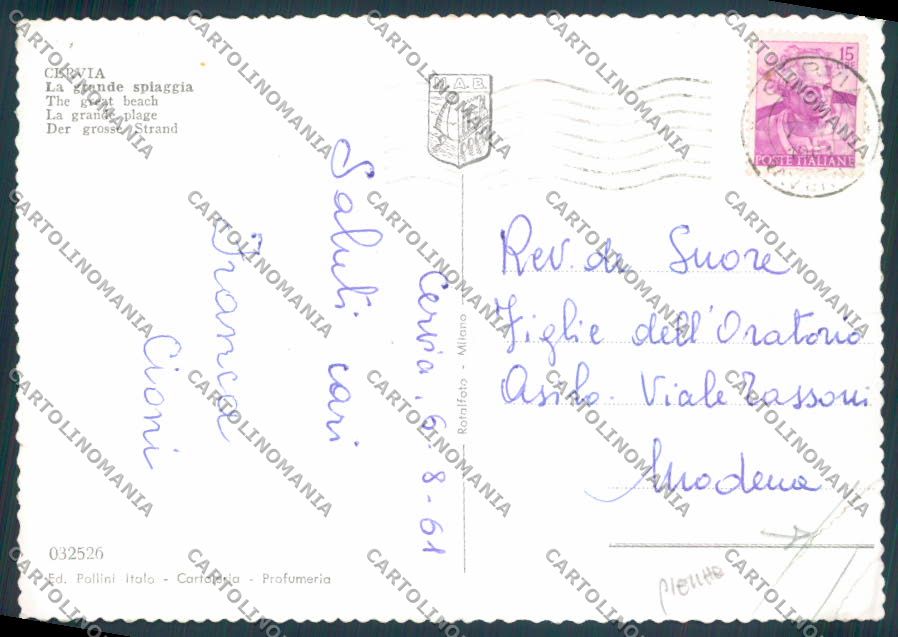 CERVIA
La grande spiaggia
The great beach
La grande plage
Der grosse Strand
M.A.B.
15
LIRE
POSTE ITALIANE
Cervia, 6-8-61
Saluti cari
Franca
Cioni
Rotalfoto - Milano
Rev. de Suore
Figlie dell'Oratorio
Asilo. Viale Tassoni
Modena
032526
Ed. Pollini Italo - Cartoleria - Profumeria
CARTOLINOMANIA